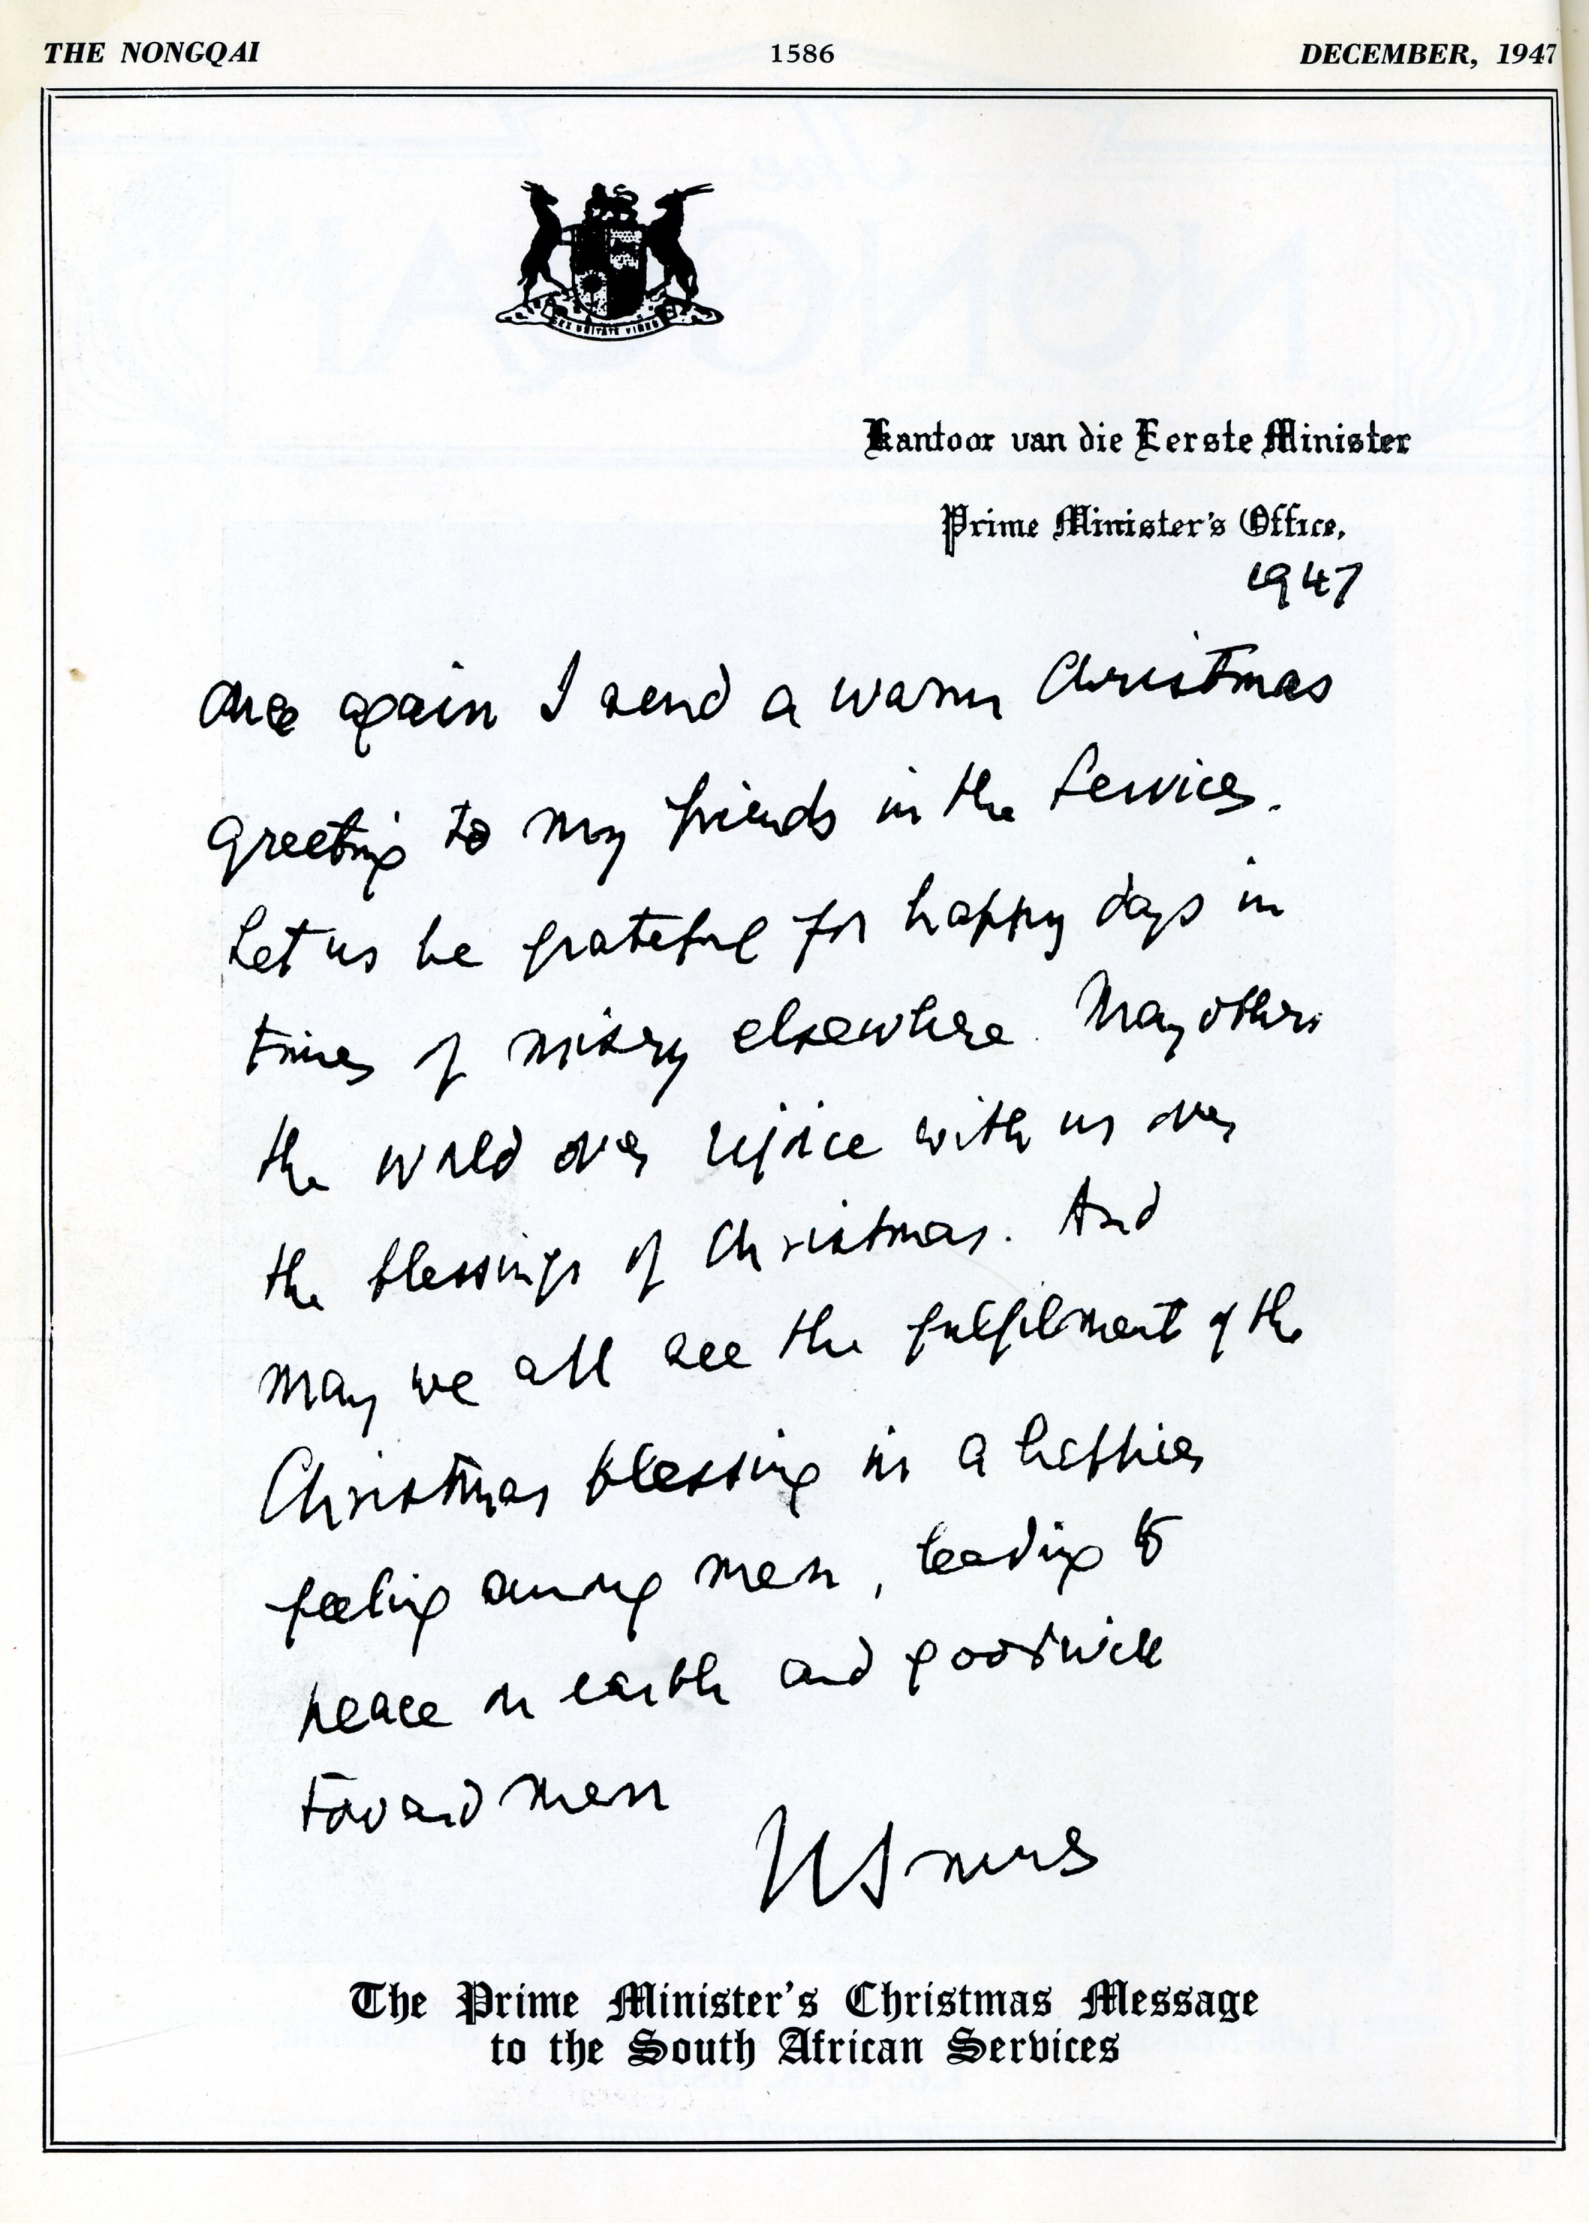 THE NONGQAI 1586 DECEMBER, 1947
EX UNITATE VIRES
Kantoor van die Eerste Minister
Prime Minister's Office,
1947
Once again I send a warm Christmas
greeting to my friends in the Services.
Let us be grateful for happy days in
times of misery elsewhere. May others
the world over rejoice with us over
the blessings of Christmas. And
may we all see the fulfilment of the
Christmas blessing in a
feeling among men, leading to
peace on earth and goodwill
toward men
The Prime Minister's Christmas Message
to the South African Services